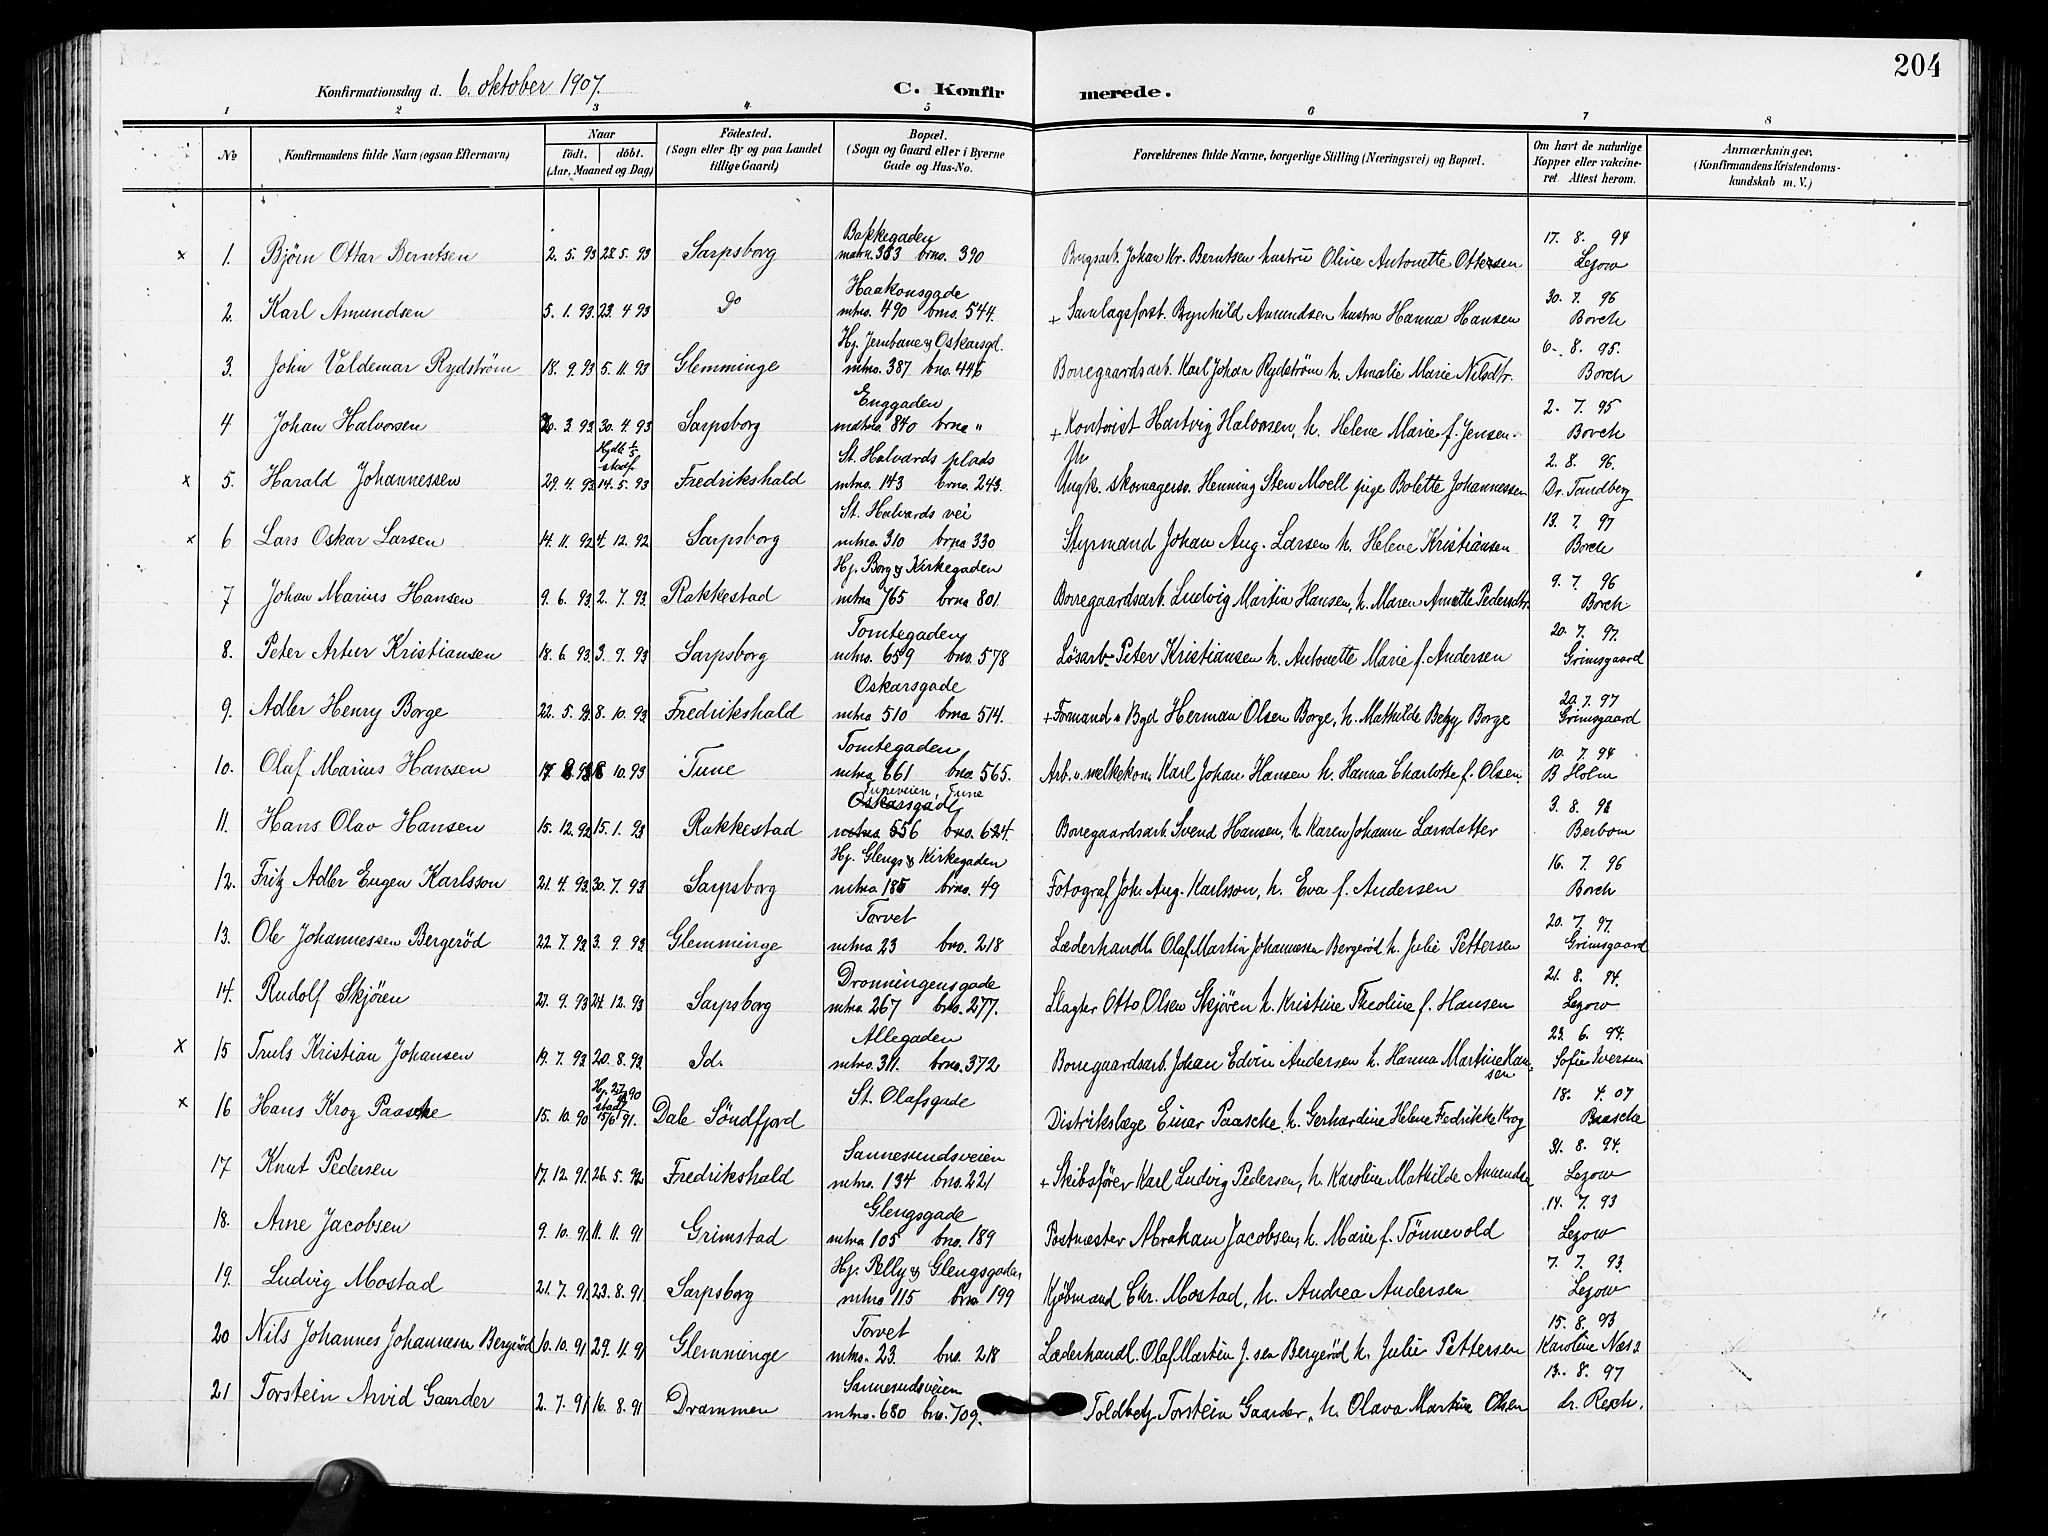 204
Konfirmationsdag d. 6. oktober 1907.
C. Konfirmerede.
1 2 3 4 5 6 7 8
No
Konfirmandens fulde Navn (ogsaa Efternavn)
Naar
födt. döbt.
(Aar, Maaned og Dag)
Födested.
(Sogn eller By og paa Landet
tillige Gaard)
Bopæl.
(Sogn og Gaard eller i Byerne
Gade og Hus-No.
Forældrenes fulde Navne, borgerlige Stilling (Næringsvei) og Bopæl.
Om havt de naturlige
Kopper eller vakcine-
ret. Attest herom.
Anmærkninger,
(Konfirmandens Kristendoms-
kundskab m. V.)
Bakkegaden 17. 8. 94
x 1. Bjørn Ottar Berntsen 2. 5. 93 28. 5. 93 Sarpsborg matrn. 383 brno. 390 Brugsarb. Johan Kr. Berntsen hustru Oline Antonette Ottersen Lezow
Haakonsgade 30. 7. 96
2. Karl Amundsen 5. 1. 93. 23. 4 93 Do mtno. 490 bno. 544. + Samlagsforst. Bynhild Amundsen hustru Hanna Hansen Borch
Hj. Jernbane & Oskarsgd. 6. 8. 95.
3. John Valdemar Rydström 18. 9. 93 5. 11. 93 Glemminge mtno. 387 bno. 446 Borregaardsarb. Karl Johan Rydström h. Amalie Marie Nilsdtr. Borch
Enggaden 2. 7. 95
4 Johan Halvorsen 20. 3. 93 30. 4. 93 Sarpsborg matrno. 840 brno " + Kontorist Hartvig Halvorsen, h. Helene Marie f. Jensen. Borch
stadf. St. Halvards plads 2. 8. 96.
x 5. Harald Johannessen 29. 4. 93 14. 5. 93 Fredrikshald mtno. 143 brno. 243. Ungk. skomagersv. Henning Sten Moell pige Bolette Johannessen Dr. Tandberg
St. Halvards vei 13. 7. 97
x 6 Lars Oskar Larsen 14. 11. 92 4. 12. 92 Sarpsborg mtno. 310 brno 330 Styrmand Johan Aug. Larsen h. Helene Kristiansen Borch
Hj. Borg & Kirkegaden 9. 7. 96
7 Johan Marius Hansen 9. 6. 93 2. 7. 93. Rakkestad mtno 765 brno 801 Borregaardsarb. Ludvig Martin Hansen, h. Maren Anette Pedersdtr. Borch
Tomtegaden 20. 7. 97.
8. Peter Artur Kristiansen 18. 6. 93 3. 9. 93 Sarpsborg mtno. 659 bno. 578 Løsarb. Peter Kristiansen h. Antonette Marie f. Andersen Grimsgaard
Oskarsgade 20. 7. 97
9. Adler Henry Borge 22. 5. 93 8. 10. 93 Fredrikshald mtno 510 brno 514. + Formand v Byd Herman Olsen Borge, h. Mathilde Betzy Borge Grimsgaard
Tomtegaden 10. 7. 94
10. Olaf Marius Hansen 17 8. 93 18 10. 93 Tune mtno 661 bno. 565. Arb. v. melkekon. Karl Johan Hansen h. Hanna Charlotte f. Olsen. B Holm
Tuneveien, Tune
Oskarsgade 3. 8. 98
11. Hans Olav Hansen 15. 12. 92 15. 1. 93 Rakkestad mtno 656 bno. 624. Borregaardsarb. Svend Hansen, h Karen Johanne Larsdatter Berbom
Hj. Glengs & Kirkegaden 16. 7. 96
12. Fritz Adler Eugen Karlsson 21. 4. 93 30. 7. 93 Sarpsborg mtno 185 brno. 49 Fotograf Joh. Aug. Karlsson, h. Eva f. Andersen Borch
Torvet 20. 7. 97.
13. Ole Johannessen Bergerød 22. 7. 93 3. 9. 93 Glemminge mtno 23 bno. 218 Læderhandl. Olaf Martin Johannesen Bergerød h. Julie Pettersen Grimsgaard
Dronningensgade 21. 8. 94.
14. Rudolf Skjören 23. 9. 93 24. 12. 93 Sarpsborg mtno 267 bno. 277. Slagter Otto Olsen Skjören h. Kristine Theoline f. Hansen Lezow
Allegaden 23. 6. 94.
x 15 Truls Kristian Johansen 19. 7. 93 20. 8. 93. Id. mtno. 311. brno. 372 Borregaardsarb. Johan Edvin Andersen h. Hanna Martine Hansen Sofie Iversen
Hj. 27/ 90 stadf. St. Olafsgade 18. 4. 07
x 16 Hans Krog Paasche 15. 10. 90 15/6 91. Dale Söndfjord Distriktslæge Einar Paasche h. Gerhardine Helene Fredrikke Krog Paasche
Sannesundsveien 31. 8. 94.
17 Knut Pedersen 17. 12. 91 26. 5. 92 Fredrikshald mtno. 134 bno. 221 + Skibsfører Karl Ludvig Pedersen, h. Karoline Mathilde Amundsen Lezow
Glengsgade 14. 7. 93
18. Arne Jacobsen 9. 10. 91 11. 11. 91 Grimstad mtno 105 bno. 189 Postmester Abraham Jacobsen, h. Marie f. Tönnevold Lezow
Hj. Pelly & Glengsgaden 7. 7. 93.
19. Ludvig Mostad 21. 7. 91 23. 8. 91 Sarpsborg mtno 115 brno 199 Kjøbmand Chr. Mostad, h. Andrea Andersen Lezow
Torvet 15. 8. 93
20 Nils Johannes Johannesen Bergerød 10. 10. 91 29. 11. 91 Glemminge mtno. 23. bno. 218 Læderhandl. Olaf Martin J. sen Bergerød h. Julie Pettersen Karoline Næss
Sannesundsveien 13. 8. 97
21 Torstein Arvid Gaarder 2. 7. 91 16. 8. 91 Drammen mtno. 680 bno. 709. Toldbetj Torstein Gaarder, h. Olava Martine Olsen dr. Rexh.